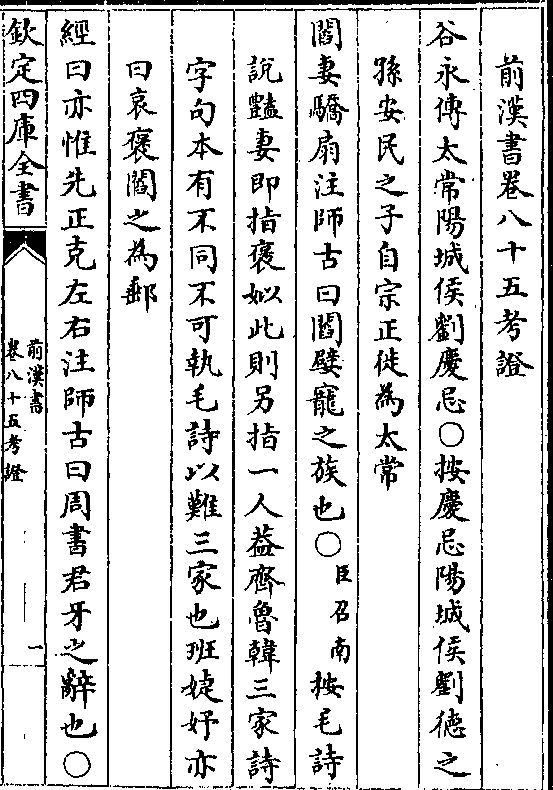 前漢書卷八十五考證
谷永傳太常陽城侯劉慶忌○按慶忌陽城侯劉德之
孫安民之子自宗正徙為太常
閻妻驕扇注師古曰閻嬖寵之族也○臣召南按毛詩
說豔妻即指褒姒此則另指一人葢齊魯韓三家詩
字句本有不同不可執毛詩以難三家也班婕妤亦
曰哀褒閻之為郵
經曰亦惟先正克左右注師古曰周書君牙之辭也○
欽定四庫全書
前漢書
卷八十五考證
一